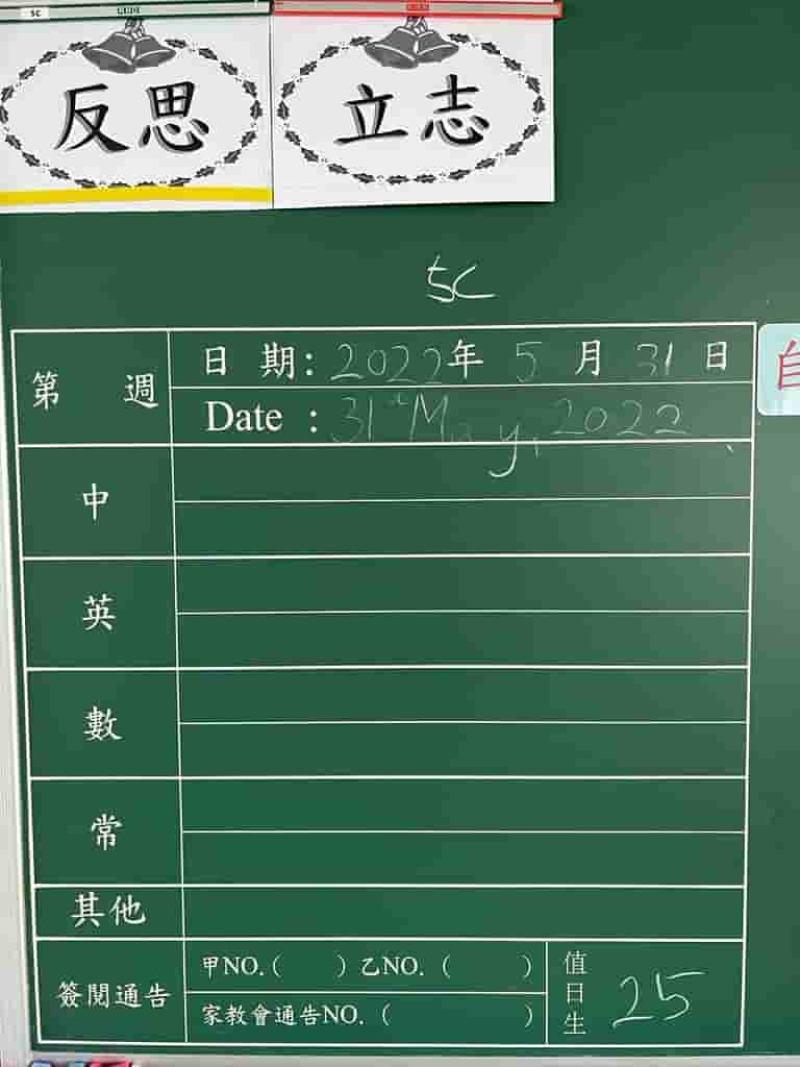 5C
反思
立志
5C
第 週
日 期: 2022年 5 月 31 日
Date : 31st May, 2022
中
英
數
常
其他
簽閱通告
甲NO.( ) 乙NO. ( )
家教會通告NO. ( )
值日生 25
自